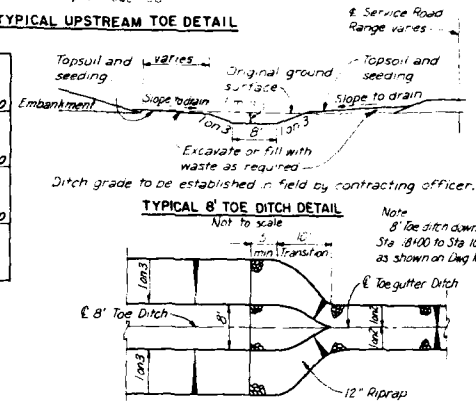 TYPICAL UPSTREAM TOE DETAIL
℄ Service Road
Range varies
Topsoil and
seeding
varies
Original ground
surface
Topsoil and
seeding
Embankment
Slope to drain
Slope to drain
1 on 3
8'
1 on 3
Excavate or fill with
waste as required
Ditch grade to be established in field by contracting officer.
TYPICAL 8' TOE DITCH DETAIL
Not to scale
Note
8' Toe ditch down
Sta 18+00 to Sta 10
as shown on Dwg
min
10'
Transition
1 on 3
℄ Toe gutter Ditch
℄ 8' Toe Ditch
8'
1 on 2
1 on 2
1 on 3
12" Riprap